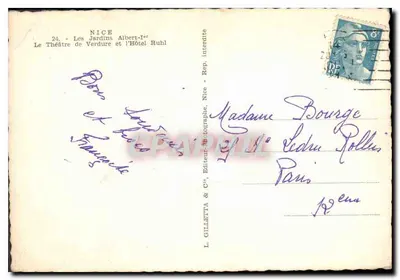 NICE
24. - Les Jardins Albert-1er
Le Théâtre de Verdure et l'Hôtel Ruhl
Bons
et
Françoise
L. GILLETTA & Cie, Editeurs Photographe, Nice - Rep. interdite
Madame Bourge
Ledru Rollin
Paris
12ème